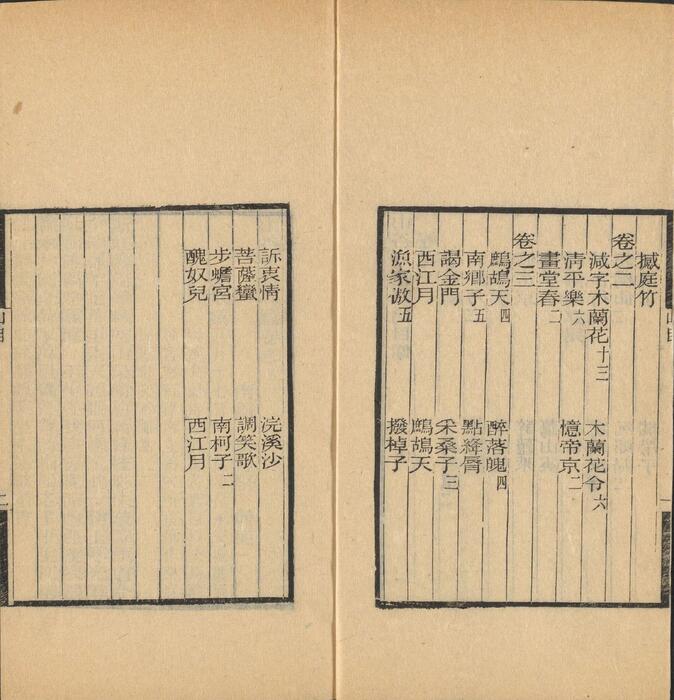 撼庭竹
卷之二
減字木蘭花十三 木蘭花令六
淸平樂六 憶帝京二
畫堂春二
卷之三
鷓鴣天四 醉落魄四
南鄉子五 點絳脣
謁金門 采桑子三
西江月 鷓鴣天
漁家傲五 撥棹子
訴衷情 浣溪沙
菩薩蠻 調笑歌
步蟾宮 南柯子二
醜奴兒 西江月